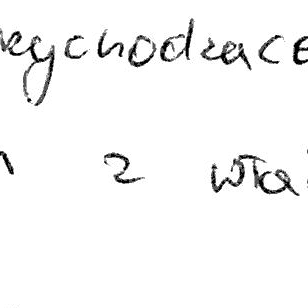 ychodzące
z wła